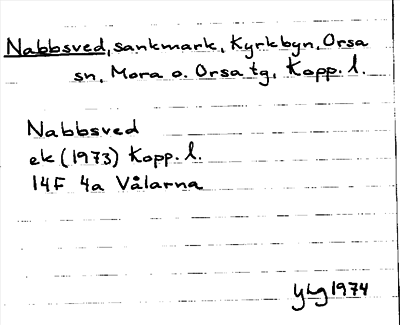 Nabbsved, sankmark, Kyrkbyn, Orsa
sn, Mora o. Orsa tg, Kopp. l.
Nabbsved
ek (1973) Kopp. l.
14F 4a Vålarna
YLg 1974